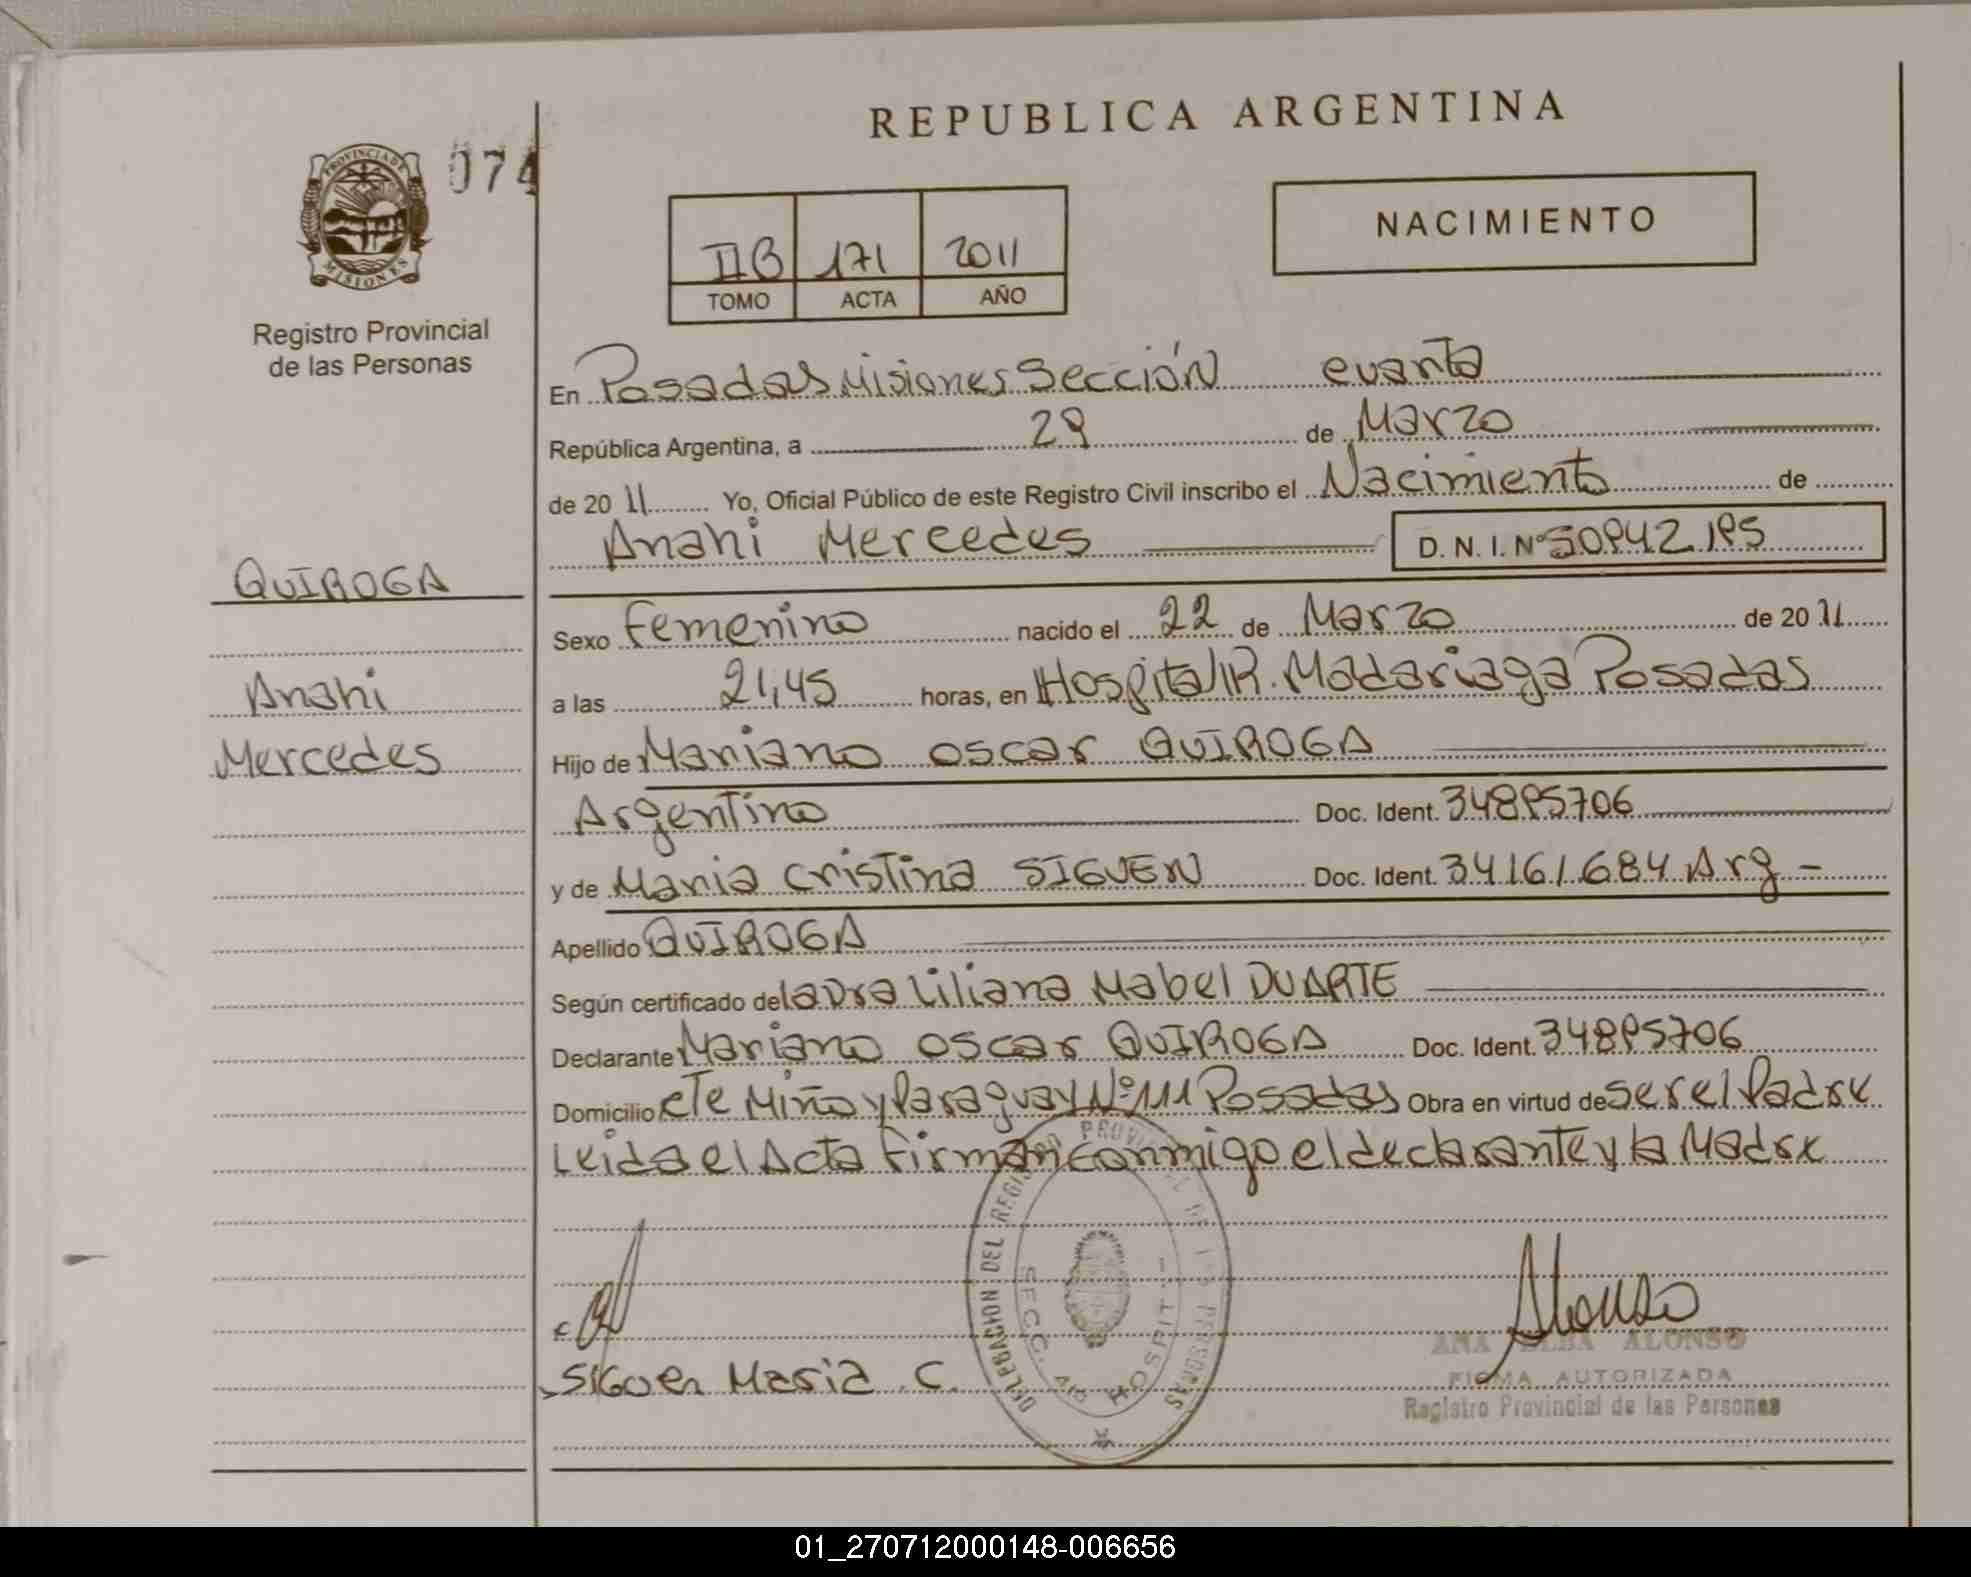 REPUBLICA ARGENTINA
074
PROVINCIA DE MISIONES
Registro Provincial
de las Personas
NACIMIENTO
IIB 171 2011
TOMO ACTA AÑO
En Posadas Misiones Sección cuarta
República Argentina, a 29 de Marzo
de 20 11 Yo, Oficial Público de este Registro Civil inscribo el Nacimiento de
Anahi Mercedes D.N.I. Nº 50942195
QUIROGA
Anahi
Mercedes
Sexo Femenino nacido el 22 de Marzo de 20 11
a las 21,45 horas, en Hospital R. Madariaga Posadas
Hijo de Mariano Oscar QUIROGA
Argentino Doc. Ident. 34895706
y de Maria Cristina SIGUEN Doc. Ident. 34161684 Arg -
Apellido QUIROGA
Según certificado de la Dra Liliana Mabel DUARTE
Declarante Mariano Oscar QUIROGA Doc. Ident. 34895706
Domicilio cTe Miño y Paraguay Nº 111 Posadas Obra en virtud de ser el Padre
Leida el Acta Firman conmigo el declarante y la Madre
DELEGACION DEL REGISTRO PROVINCIAL DE LAS PERSONAS
SECC. 4ta HOSPIT
Siguen Maria C.
Alonso
ANA ELBA ALONSO
FIRMA AUTORIZADA
Registro Provincial de las Personas
01_270712000148-006656